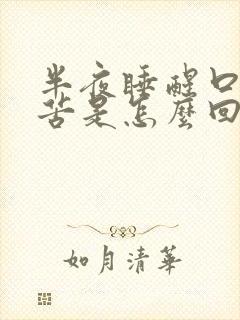 半夜睡醒口
苦是怎麼回
如月清華